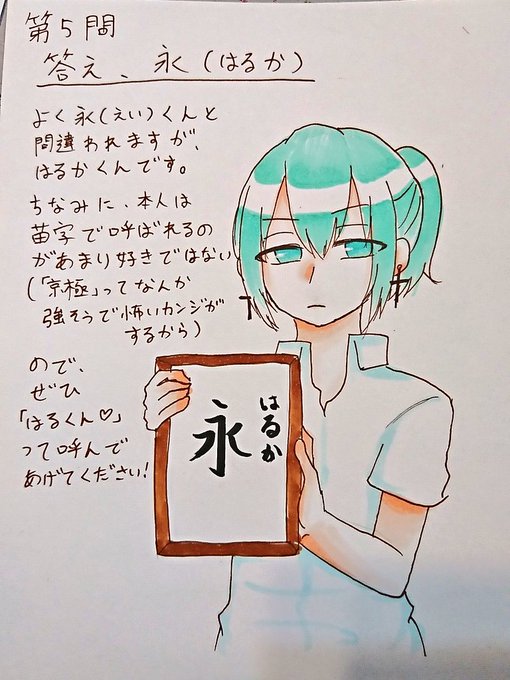 第5問
答え、永(はるか)
よく永(えい)くんと
間違われますが、
はるかくんです。
ちなみに、本人は
苗字で呼ばれるの
があまり好きではない
(「京極」ってなんか
強そうで怖いカンジが
するから)
ので、
ぜひ
「はるくん♡」
って呼んで
あげてください!
はるか
永